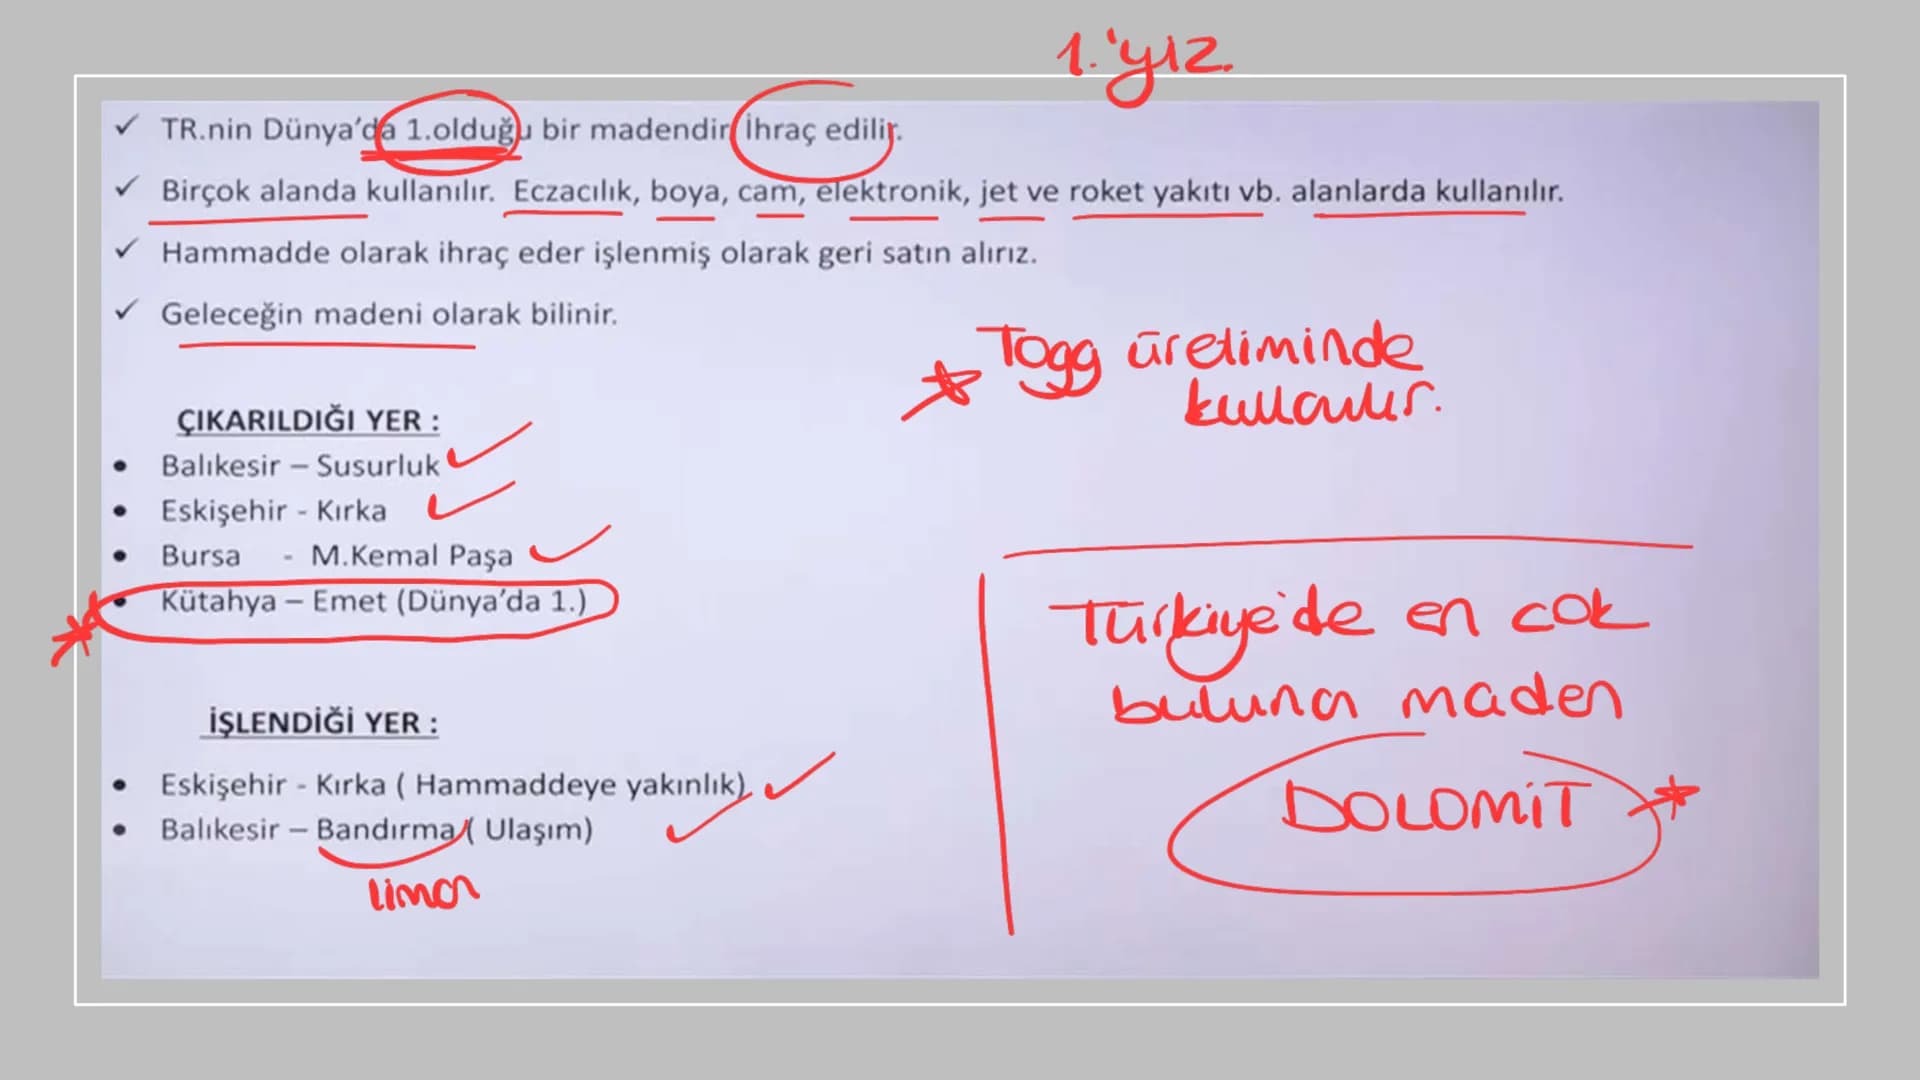 1.'yiz.
✓ TR.nin Dünya'da 1.olduğu bir madendir. İhraç edilir.
✓ Birçok alanda kullanılır. Eczacılık, boya, cam, elektronik, jet ve roket yakıtı vb. alanlarda kullanılır.
✓ Hammadde olarak ihraç eder işlenmiş olarak geri satın alırız.
✓ Geleceğin madeni olarak bilinir.
Togg üretiminde
kullanılır.
ÇIKARILDIĞI YER :
• Balıkesir – Susurluk
• Eskişehir - Kırka
• Bursa - M.Kemal Paşa
• Kütahya – Emet (Dünya'da 1.)
Türkiye'de en cok
buluna maden
DOLOMİT
İŞLENDİĞİ YER :
• Eskişehir - Kırka ( Hammaddeye yakınlık)
• Balıkesir – Bandırma ( Ulaşım)
liman